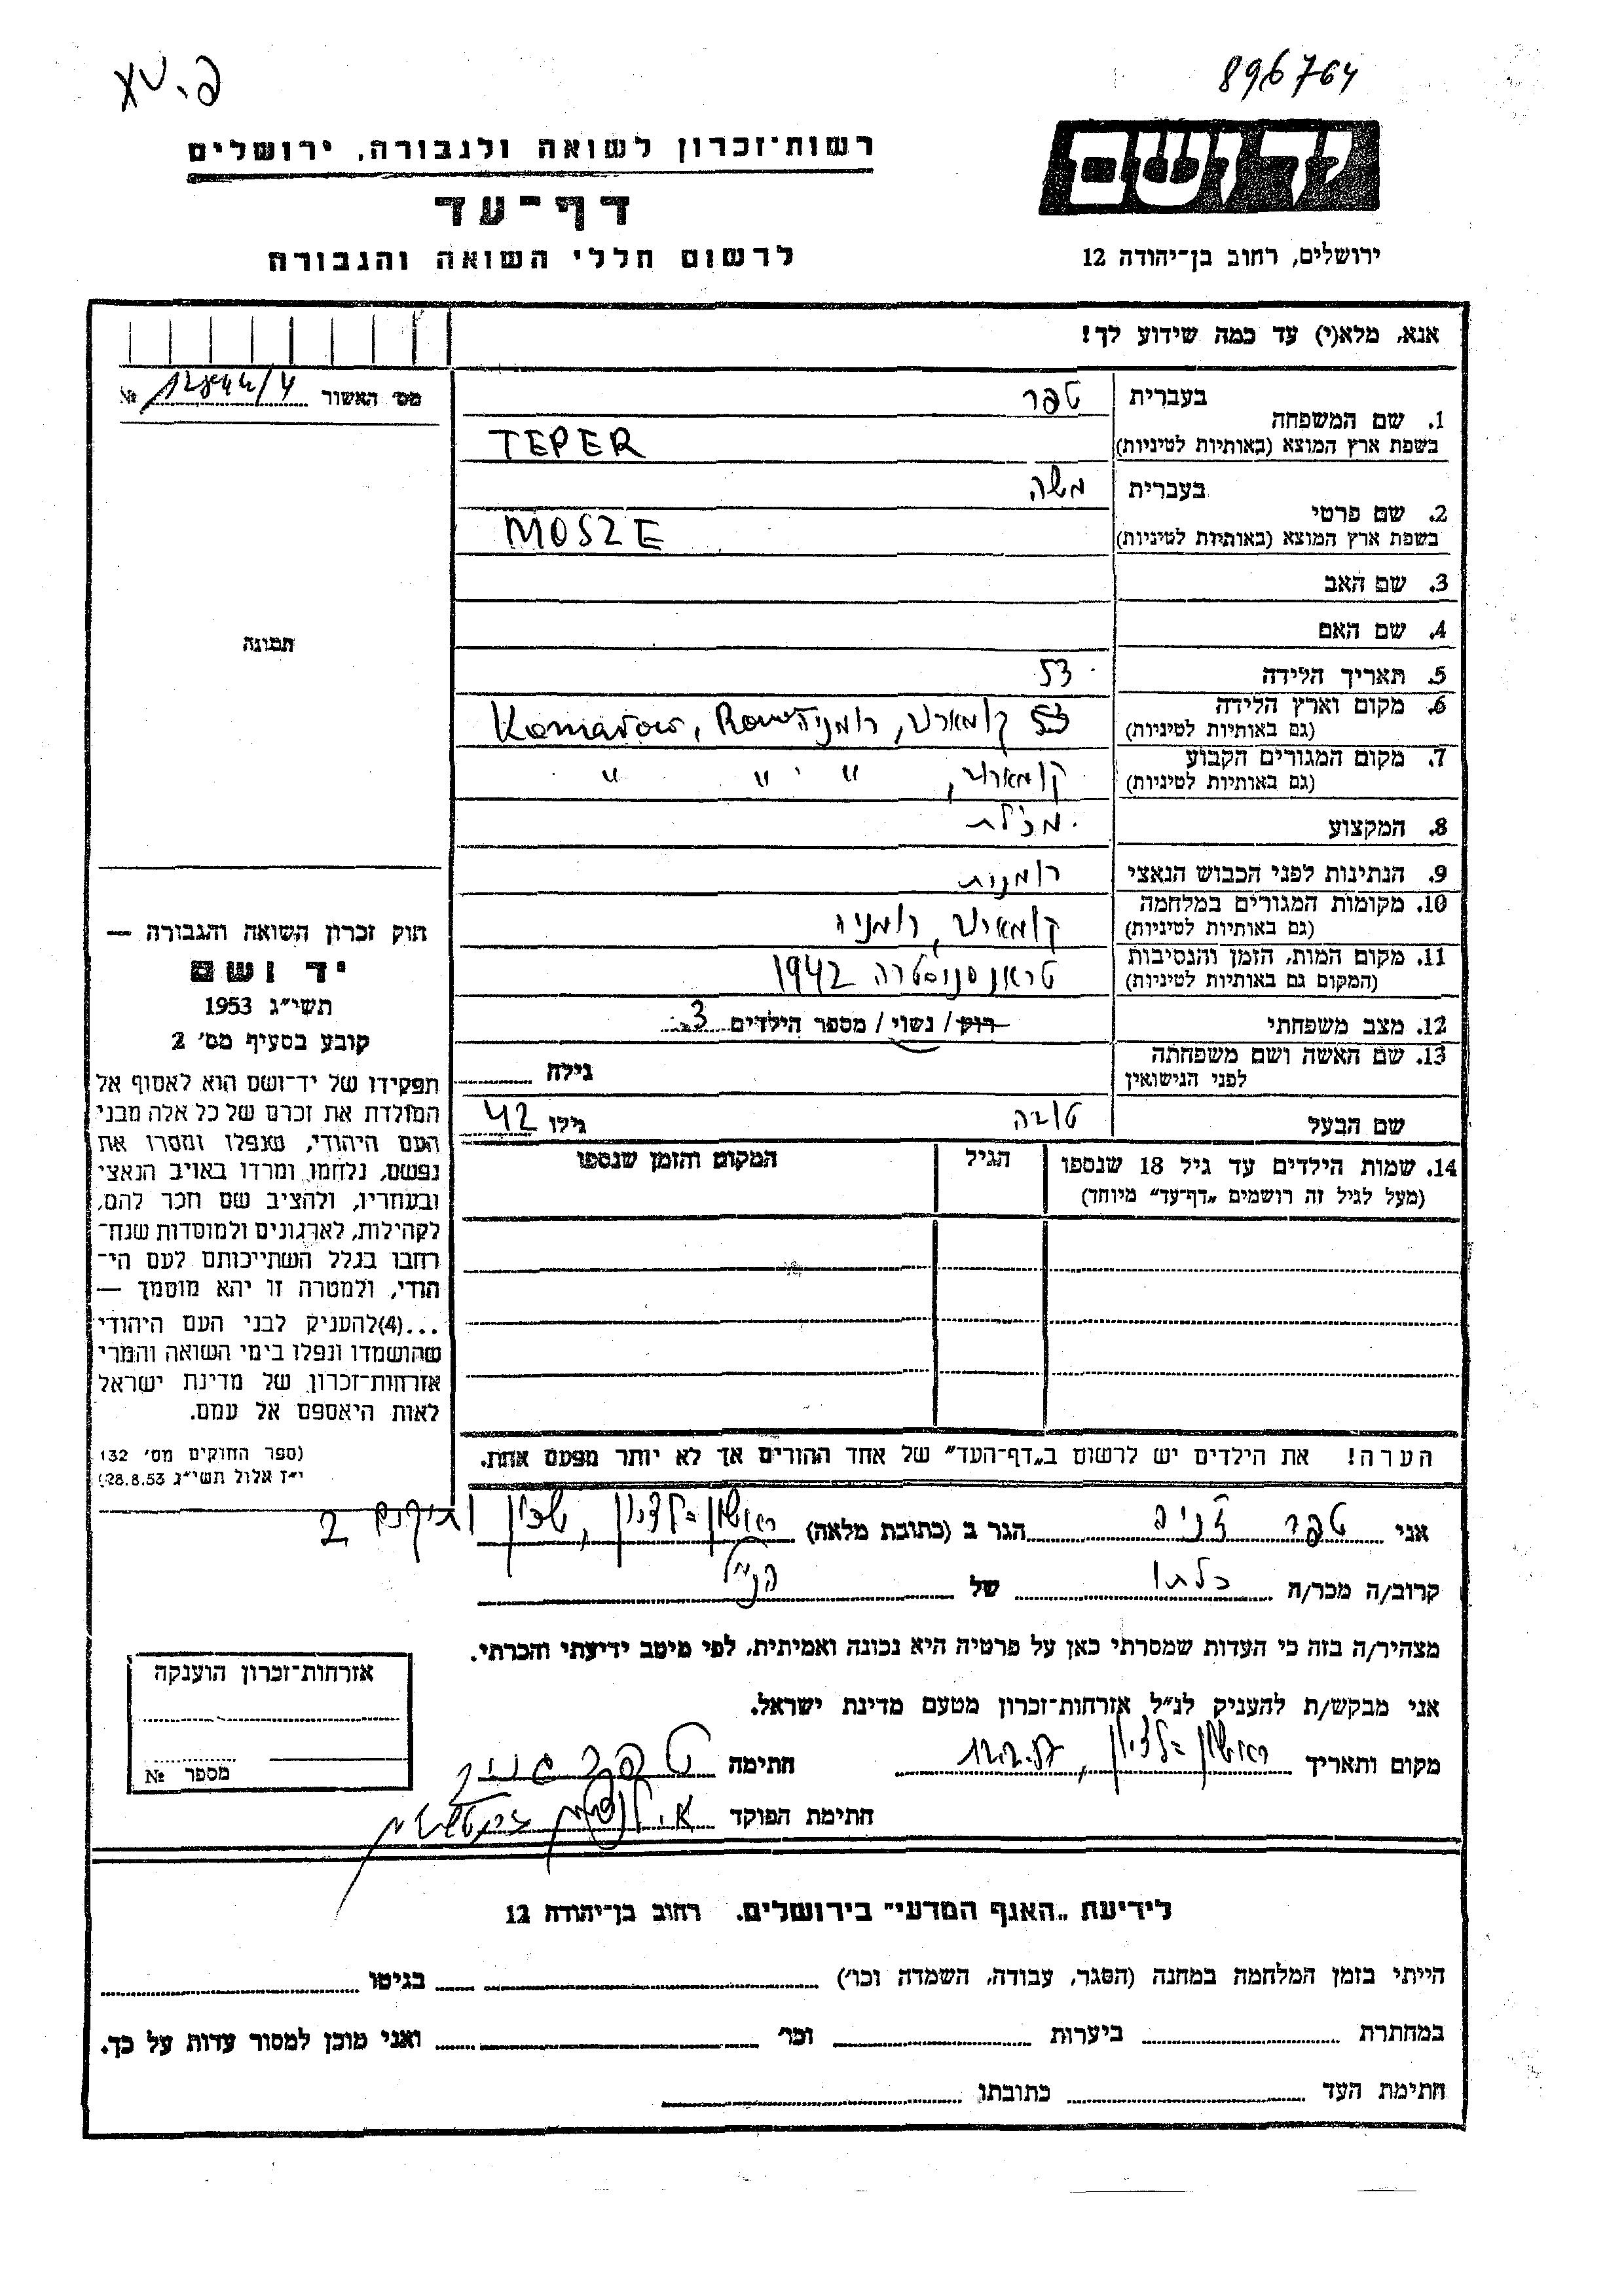 896764
רשות-זכרון לשואה ולגבורה, ירושלים
ידושם
דף-עד
לרשום חללי השואה והגבורה
ירושלים, רחוב בן-יהודה 12
אנא, מלא(י) עד כמה שידוע לך!
מס' האשור №
1. שם המשפחה
בעברית טפר
בשפת ארץ המוצא (באותיות לטיניות) TEPER
2. שם פרטי
בעברית משה
בשפת ארץ המוצא (באותיות לטיניות) MOSZE
3. שם האב
4. שם האם
תמונה
5. תאריך הלידה 53
6. מקום וארץ הלידה
(גם באותיות לטיניות) רומניה,
7. מקום המגורים הקבוע
(גם באותיות לטיניות) " " "
8. המקצוע מכלת
9. הנתינות לפני הכבוש הנאצי רומנית
10. מקומות המגורים במלחמה
(גם באותיות לטיניות) רומניה
11. מקום המות, הזמן והנסיבות
(המקום גם באותיות לטיניות) 1942
12. מצב משפחתי רוק / נשוי / מספר הילדים 3
13. שם האשה ושם משפחתה
לפני הנישואין גילה
שם הבעל טובה גילו 42
14. שמות הילדים עד גיל 18 שנספו
(מעל לגיל זה רושמים "דף-עד" מיוחד)
הגיל
המקום והזמן שנספו
הערה! את הילדים יש לרשום ב"דף-העד" של אחד ההורים אך לא יותר מפעם אחת.
חוק זכרון השואה והגבורה —
יד ושם
תשי"ג 1953
קובע בסעיף מס' 2
תפקידו של יד-ושם הוא לאסוף אל
המולדת את זכרם של כל אלה מבני
העם היהודי, שנפלו ומסרו את
נפשם, נלחמו ומרדו באויב הנאצי
ובעוזריו, ולהציב שם וזכר להם,
לקהילות, לארגונים ולמוסדות שנח-
רבו בגלל השתייכותם לעם הי-
הודי, ולמטרה זו יהא מוסמך —
...(4)להעניק לבני העם היהודי
שהושמדו ונפלו בימי השואה והמרי
אזרחות-זכרון של מדינת ישראל
לאות היאספם אל עמם.
(ספר החוקים מס' 132
י"ז אלול תשי"ג 28.8.53)
אני טפר הגר ב (כתובת מלאה) ראשון-לציון, שכון ותיקים 2
קרוב/ה מכר/ה כלתו של הנ"ל
מצהיר/ה בזה כי העדות שמסרתי כאן על פרטיה היא נכונה ואמיתית, לפי מיטב ידיעתי והכרתי.
אני מבקש/ת להעניק לנ"ל אזרחות-זכרון מטעם מדינת ישראל.
מקום ותאריך ראשון-לציון, חתימה טפר
חתימת הפוקד
אזרחות-זכרון הוענקה
מספר №
לידיעת "האגף המדעי" בירושלים. רחוב בן-יהודה 12
הייתי בזמן המלחמה במחנה (הסגר, עבודה, השמדה וכו') בגיטו
במחתרת ביערות וכו' ואני מוכן למסור עדות על כך.
חתימת העד כתובתו